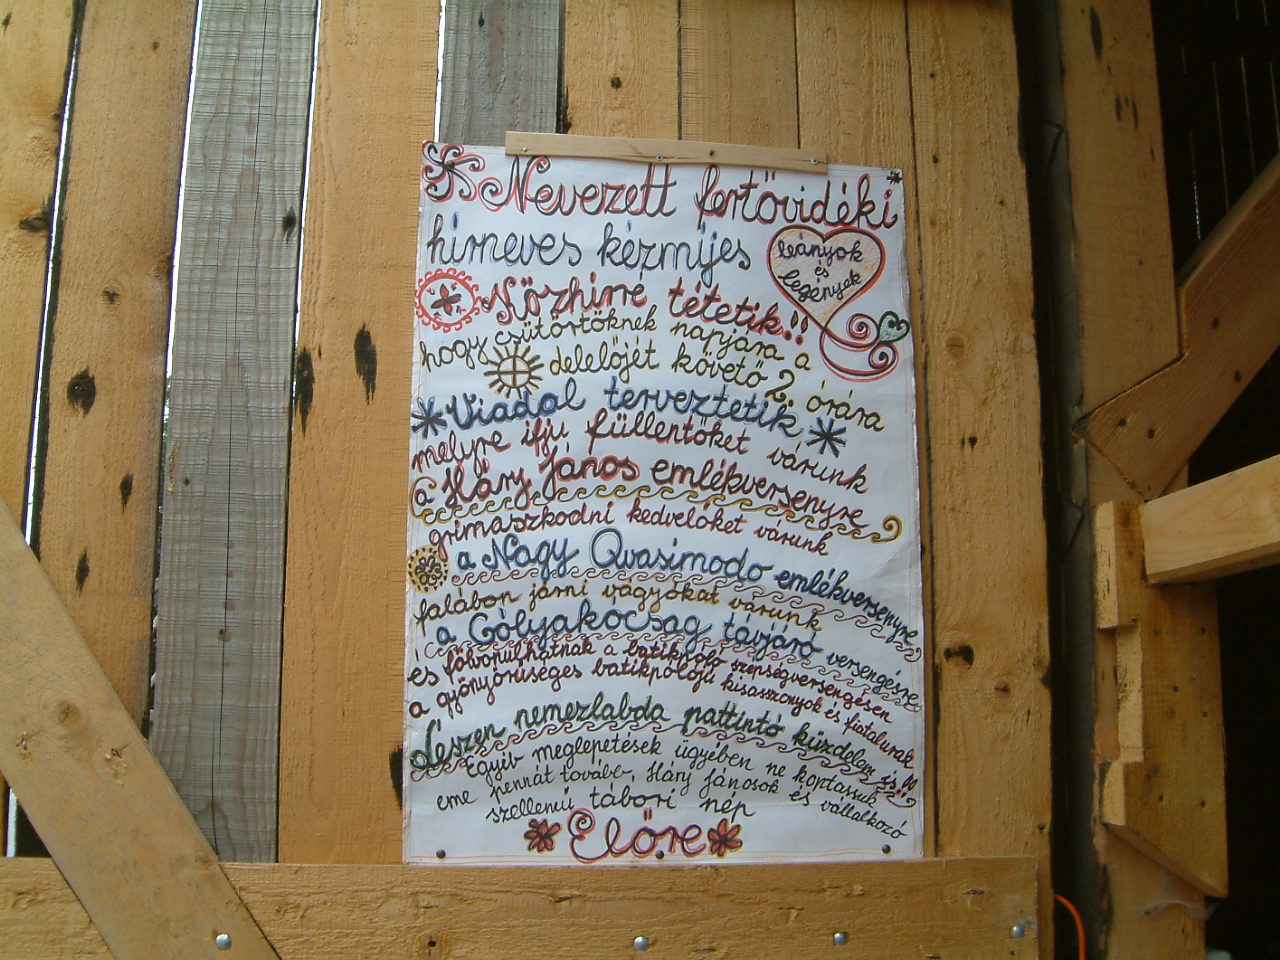 Nevezett fertővidéki
hirneves kézmíjes
leányok
és
legények
Közhirré tétetik!!
hogy csütörtöknek napjára a
delelőjét követő 2. órára
Viadal terveztetik
melyre ifju füllentőket várunk
a Háry János emlékversenyre
grimaszkodni kedvelőket várunk
a Nagy Qvasimodo emlékversenyre
falábon járni vágyókat várunk
a Gólyakócsag távjáró versengésre
és fölvonulhatnak a batikpóló szépségversengésen
a gyönyörűséges batikpólójú kisasszonyok és fiatalurak
Leszen nemezlabda pattintó küzdelem is!!
Egyéb meglepetések ügyében ne koptassuk
eme pennát tovább, Háry Jánosok és vállalkozó
szellemű tábori nép
Előre